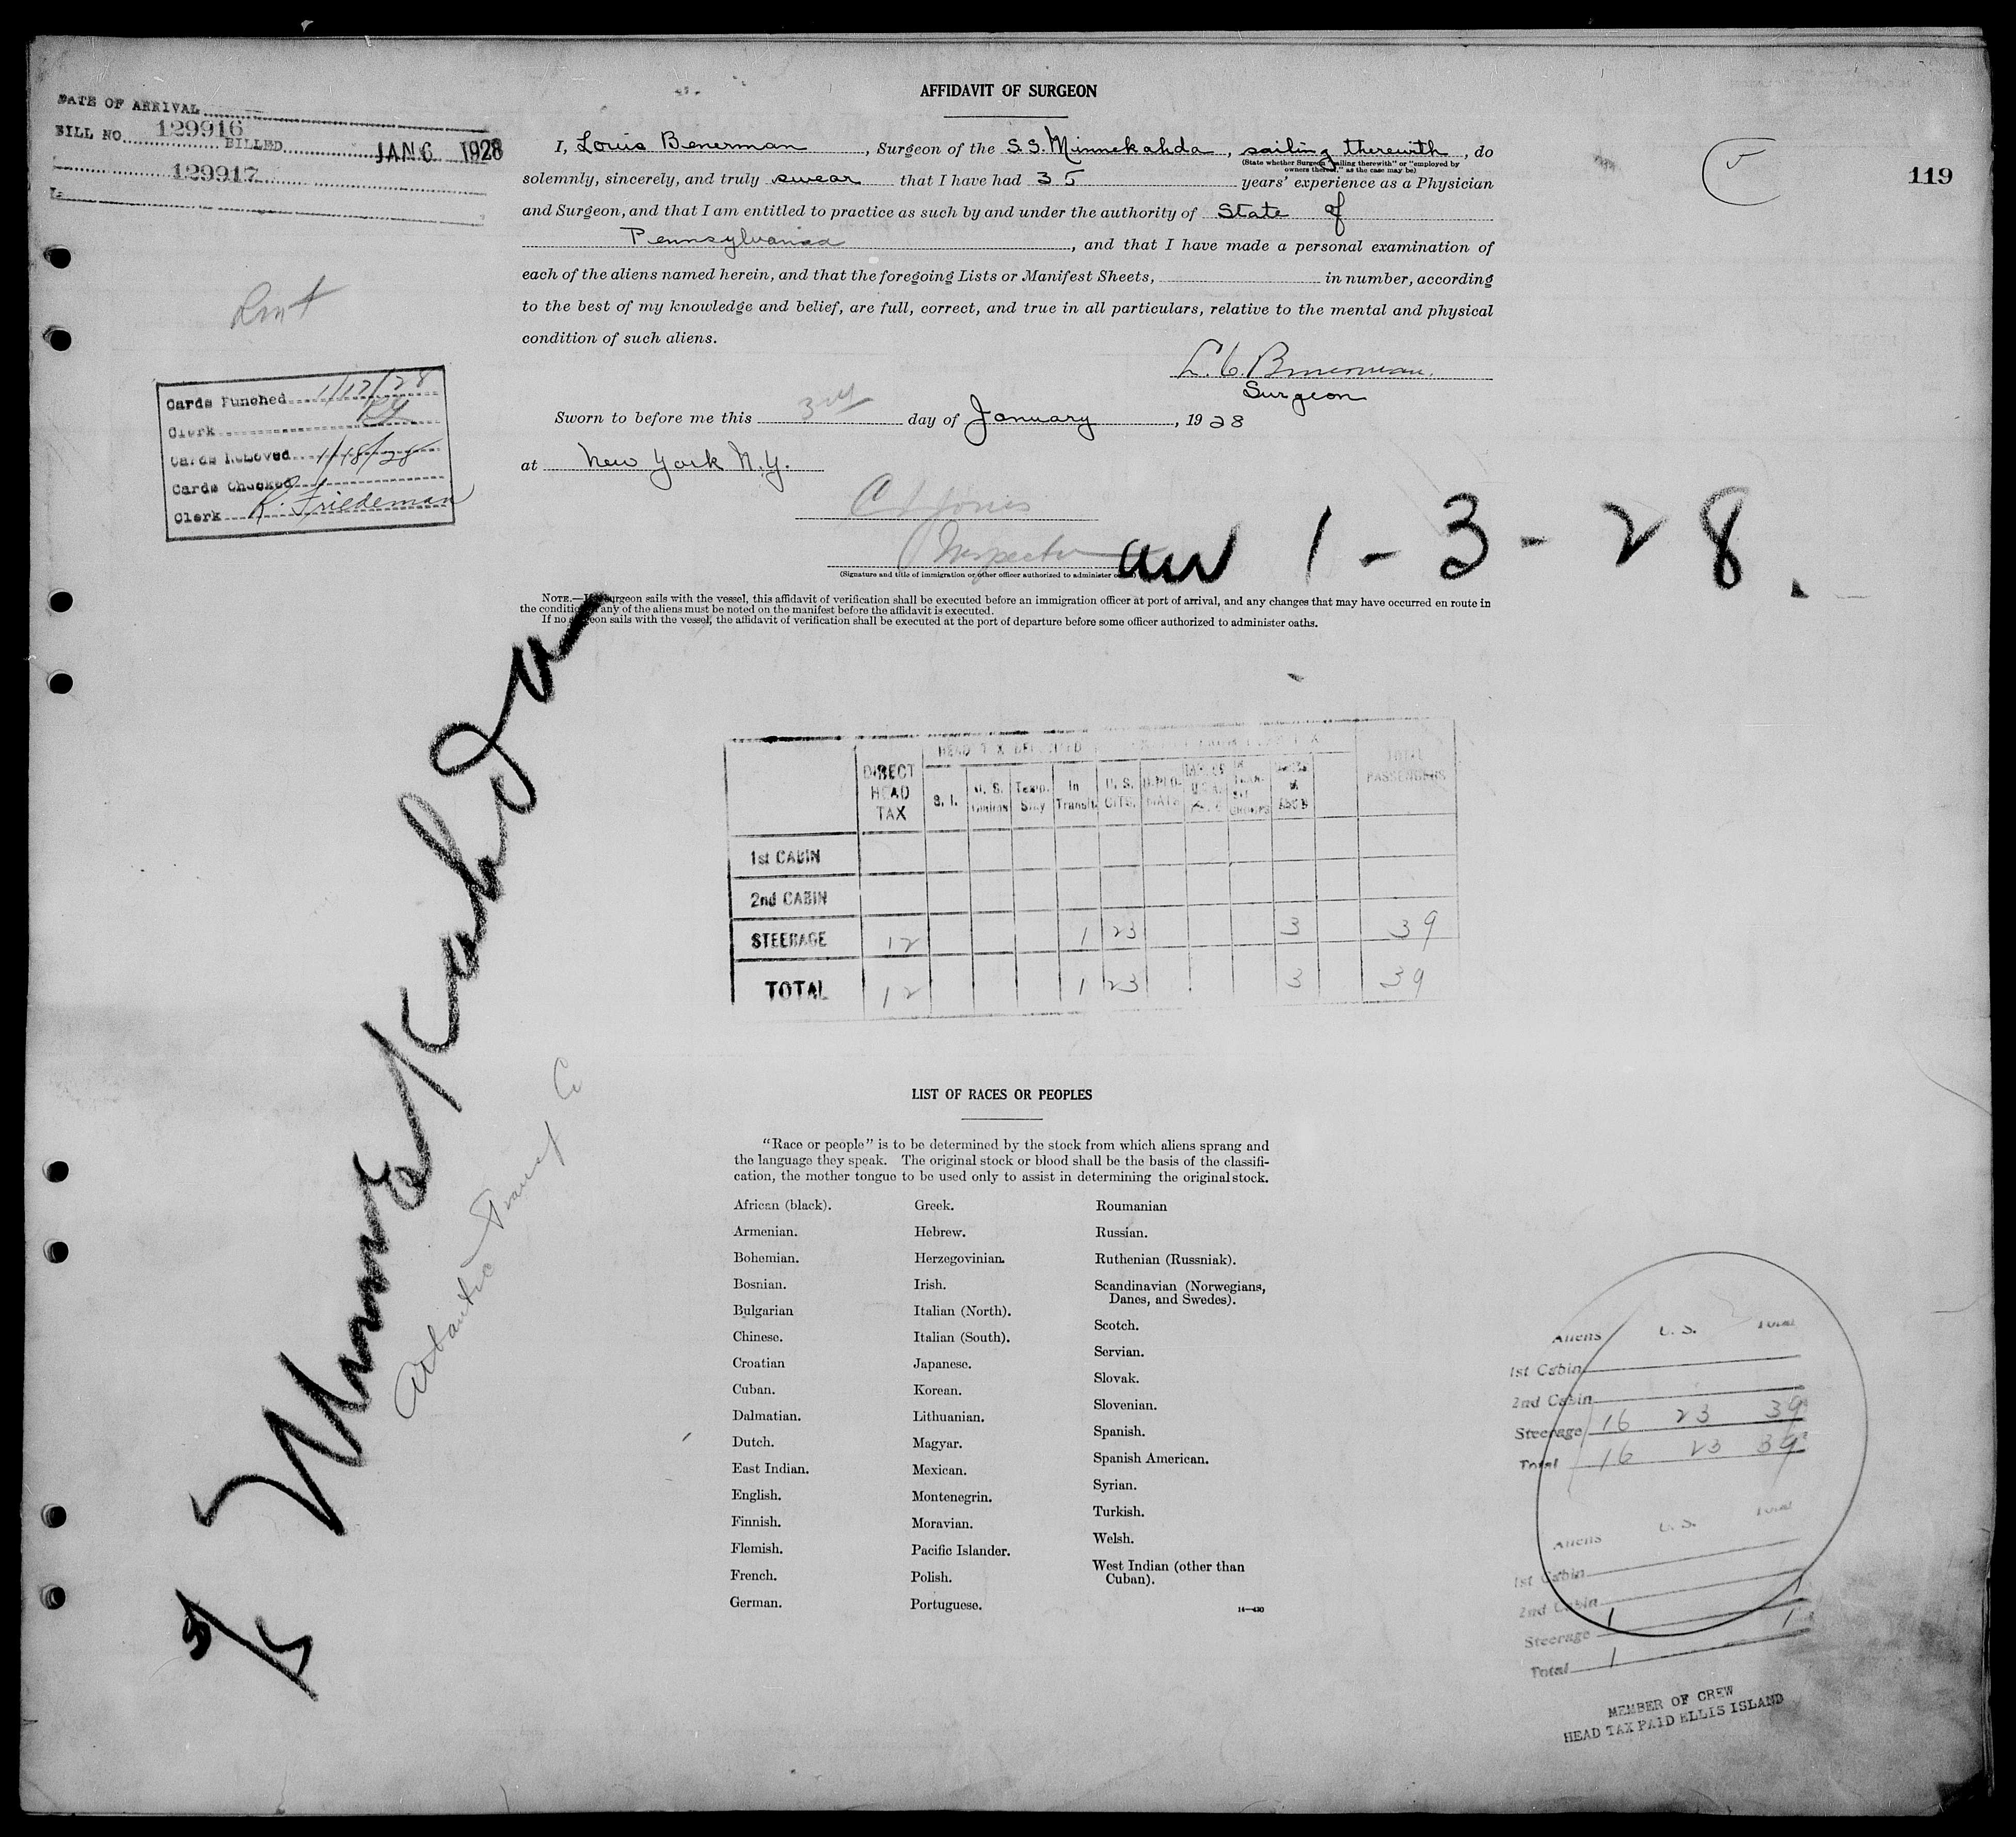 DATE OF ARRIVAL
BILL NO. 129916 BILLED JAN 6 1928
129917
119
AFFIDAVIT OF SURGEON
I, Louis Benerman, Surgeon of the S.S. Minnekahda, sailing therewith, do
(State whether Surgeon "sailing therewith" or "employed by
owners thereof," as the case may be)
solemnly, sincerely, and truly swear that I have had 35 years' experience as a Physician
and Surgeon, and that I am entitled to practice as such by and under the authority of State of
Pennsylvania, and that I have made a personal examination of
each of the aliens named herein, and that the foregoing Lists or Manifest Sheets, in number, according
to the best of my knowledge and belief, are full, correct, and true in all particulars, relative to the mental and physical
condition of such aliens.
L. C. Benerman.
Surgeon
Sworn to before me this 3rd day of January, 1928
at New York N.Y.
Inspector
(Signature and title of immigration or other officer authorized to administer oaths)
1-3-28.
NOTE.—If a surgeon sails with the vessel, this affidavit of verification shall be executed before an immigration officer at port of arrival, and any changes that may have occurred en route in
the condition of any of the aliens must be noted on the manifest before the affidavit is executed.
If no surgeon sails with the vessel, the affidavit of verification shall be executed at the port of departure before some officer authorized to administer oaths.
Cards Punched 1/12/28
Clerk
Cards Removed 1/18/28
Cards Checked
Clerk R. Friedeman
MinneKahda
Atlantic Transp Co
DIRECT HEAD TAX
S. I.
U. S.
Temp. Stay
In Transit
U. S. CITS.
DIPLO-MATS
TOTAL PASSENGERS
1st CABIN
2nd CABIN
STEERAGE 12 1 23 3 39
TOTAL 12 1 23 3 39
LIST OF RACES OR PEOPLES
"Race or people" is to be determined by the stock from which aliens sprang and
the language they speak. The original stock or blood shall be the basis of the classifi-
cation, the mother tongue to be used only to assist in determining the original stock.
African (black).
Armenian.
Bohemian.
Bosnian.
Bulgarian
Chinese.
Croatian
Cuban.
Dalmatian.
Dutch.
East Indian.
English.
Finnish.
Flemish.
French.
German.
Greek.
Hebrew.
Herzegovinian.
Irish.
Italian (North).
Italian (South).
Japanese.
Korean.
Lithuanian.
Magyar.
Mexican.
Montenegrin.
Moravian.
Pacific Islander.
Polish.
Portuguese.
Roumanian
Russian.
Ruthenian (Russniak).
Scandinavian (Norwegians,
Danes, and Swedes).
Scotch.
Servian.
Slovak.
Slovenian.
Spanish.
Spanish American.
Syrian.
Turkish.
Welsh.
West Indian (other than
Cuban).
14—430
Aliens U. S. Total
1st Cabin
2nd Cabin
Steerage 16 23 39
Total 16 23 39
Aliens U. S. Total
1st Cabin
2nd Cabin
Steerage 1 1
Total 1 1
MEMBER OF CREW
HEAD TAX PAID ELLIS ISLAND